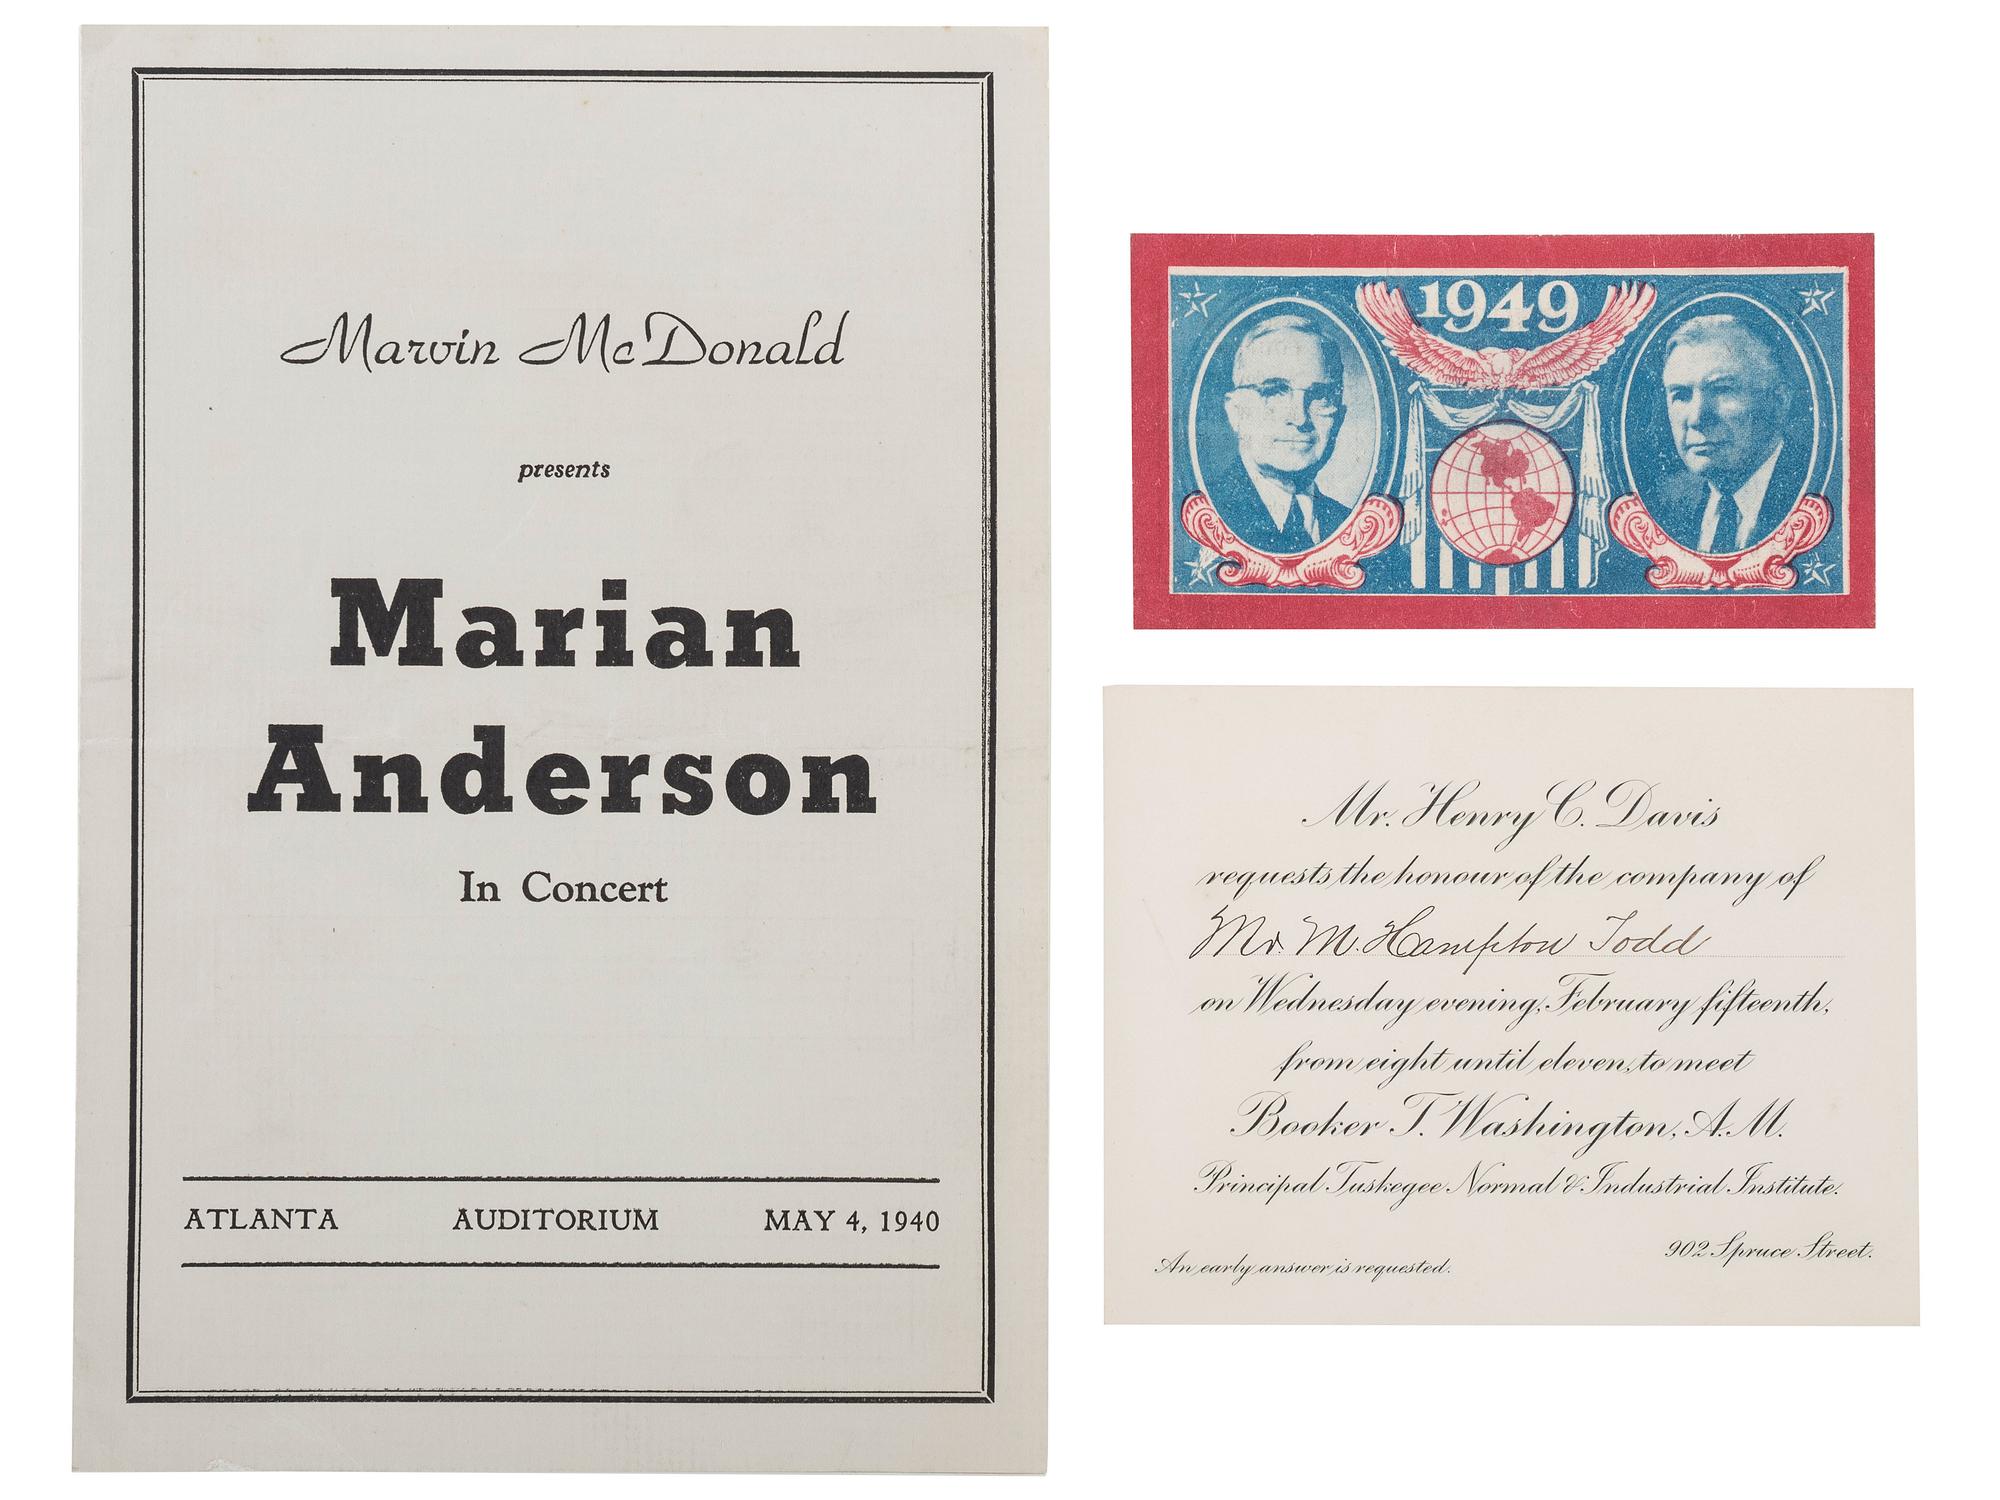 Marvin McDonald
presents
Marian
Anderson
In Concert
ATLANTA AUDITORIUM MAY 4, 1940
1949
Mr. Henry C. Davis
requests the honour of the company of
Mr. M. Hampton Todd
on Wednesday evening, February fifteenth,
from eight until eleven, to meet
Booker T. Washington, A.M.
Principal Tuskegee Normal & Industrial Institute.
902 Spruce Street.
An early answer is requested.